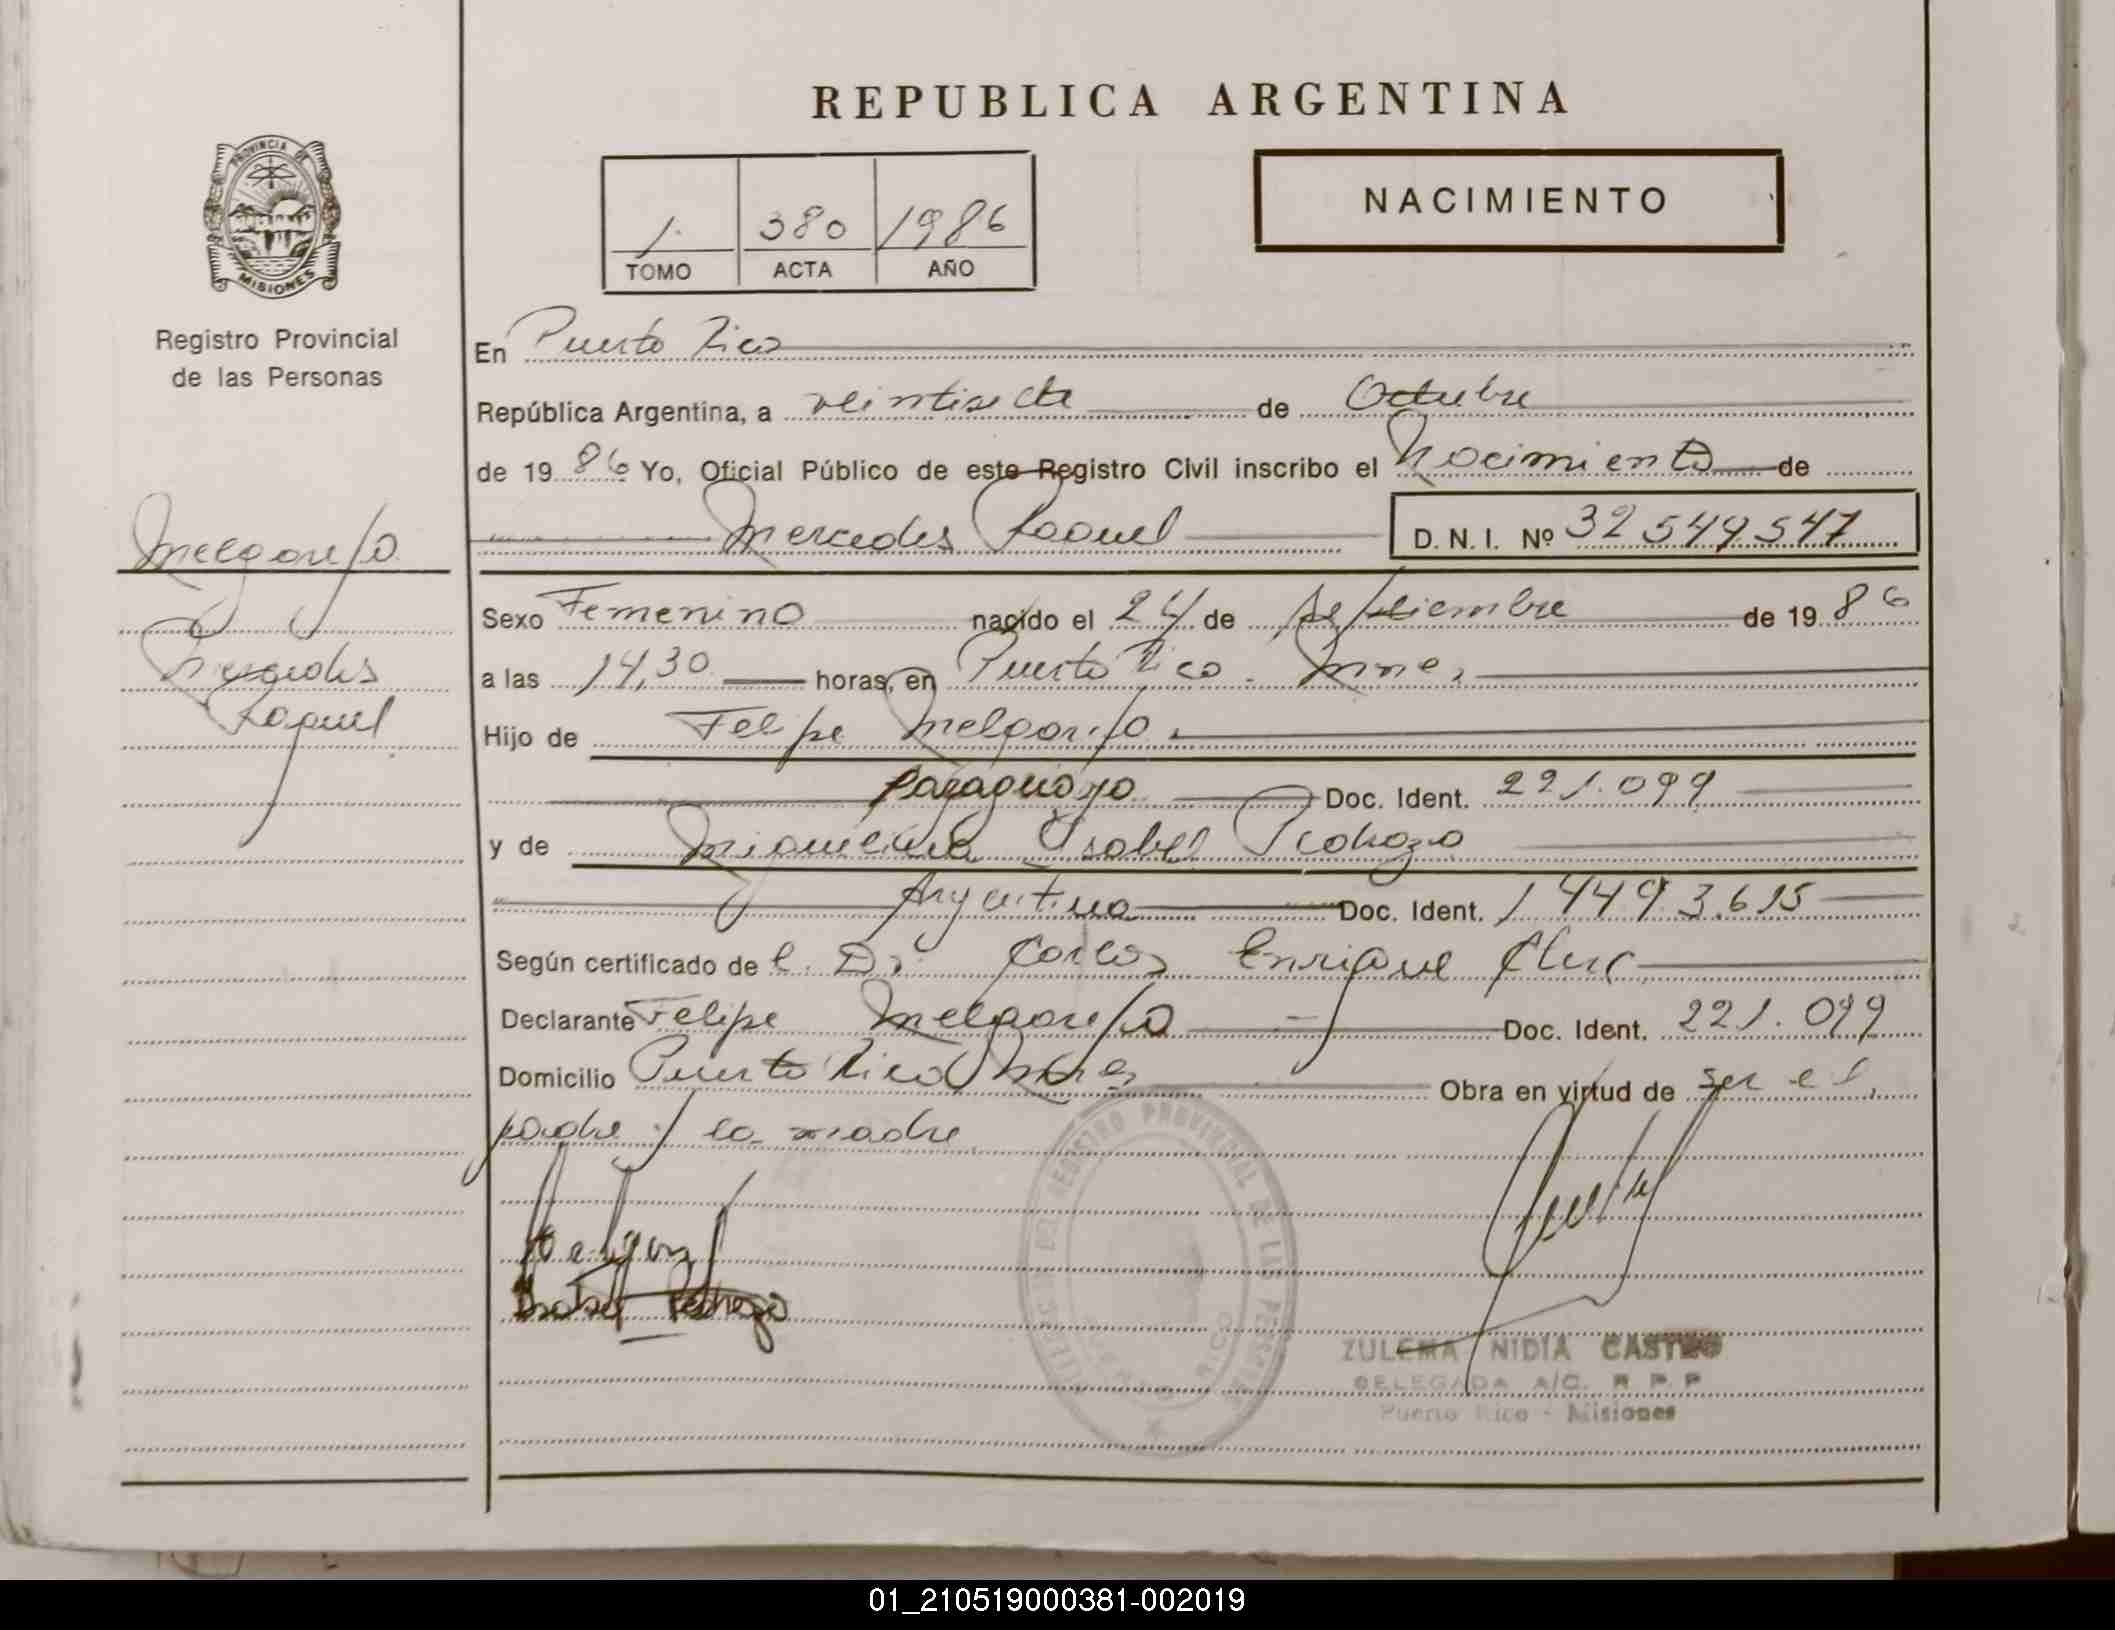 REPUBLICA ARGENTINA
PROVINCIA DE
MISIONES
Registro Provincial
de las Personas
1. 380 1986
TOMO ACTA AÑO
NACIMIENTO
En Puerto Rico
República Argentina, a veintisiete de Octubre
de 1986 Yo, Oficial Público de este Registro Civil inscribo el Nacimiento de
Mercedes Raquel D. N. I. Nº 32 549 547
Melgarejo
Mercedes
Raquel
Sexo Femenino nacido el 24 de septiembre de 1986
a las 14,30 horas, en Puerto Rico - Mnes
Hijo de Felipe Melgarejo
paraguayo Doc. Ident. 221.099
y de Isabel Pedrozo
Argentina Doc. Ident. 14493.615
Según certificado de l. Dr. Carlos Enrique
Declarante Felipe Melgarejo Doc. Ident. 221.099
Domicilio Puerto Rico Mnes Obra en virtud de ser el
padre y la madre
Isabel Pedrozo
REGISTRO PROVINCIAL DE LAS PERSONAS
ZULEMA NIDIA CASTRO
DELEGADA A/C. R P P
Puerto Rico - Misiones
01_210519000381-002019